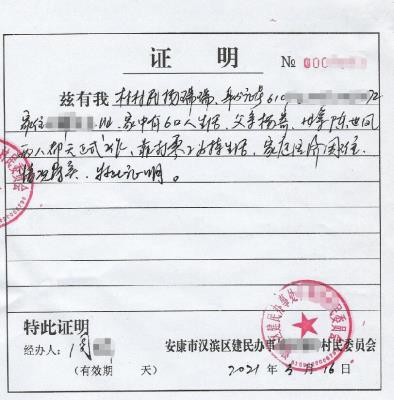 证 明
№ 000
兹有我 村村民杨瑞瑞、身份证号610 72
家住 、家中有6口人生活、父亲杨 、母亲陈世凤
两人都无正式工作、靠打零工为持生活、家庭经济困难、
情况属实、特此证明。
特此证明
经办人:闵
安康市汉滨区建民办事 村民委员会
(有效期 天)
2021 年 3 月 16 日